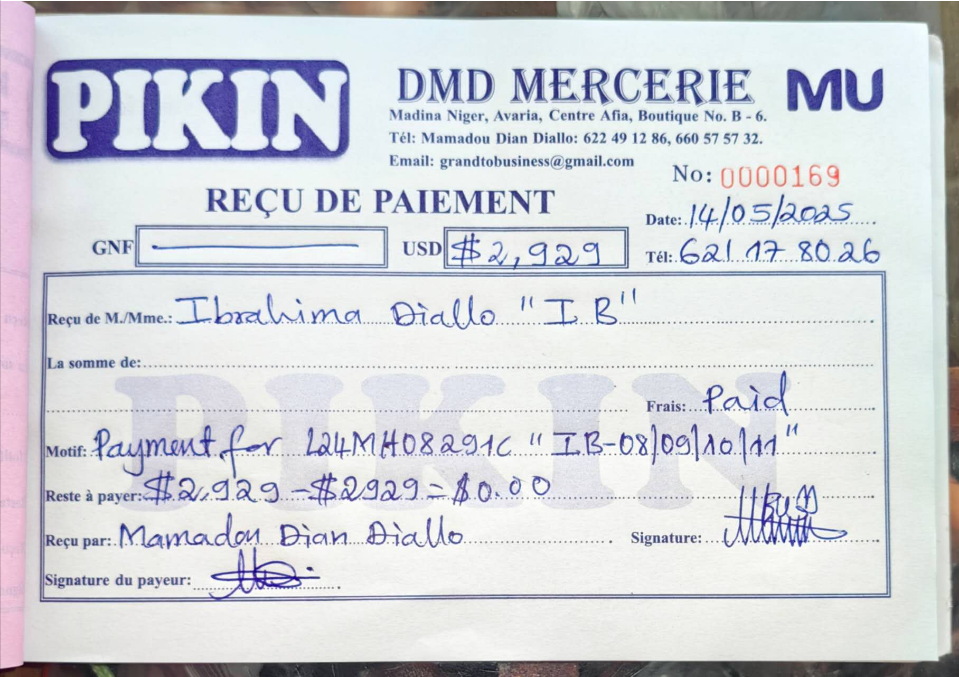 PIKIN
DMD MERCERIE MU
Madina Niger, Avaria, Centre Afia, Boutique No. B - 6.
Tél: Mamadou Dian Diallo: 622 49 12 86, 660 57 57 32.
Email: grandtobusiness@gmail.com
No: 0000169
REÇU DE PAIEMENT
Date: 14/05/2025
GNF USD $2,929 Tél: 621 17 80.26
Reçu de M./Mme.: Ibrahima Diallo "IB"
La somme de:
PIKIN
Frais: Paid
Motif: Payment for L24MH08291C "IB-08/09/10/11"
Reste à payer: $2,929 - $2929 = $0.00
Reçu par: Mamadou Dian Diallo Signature:
Signature du payeur: